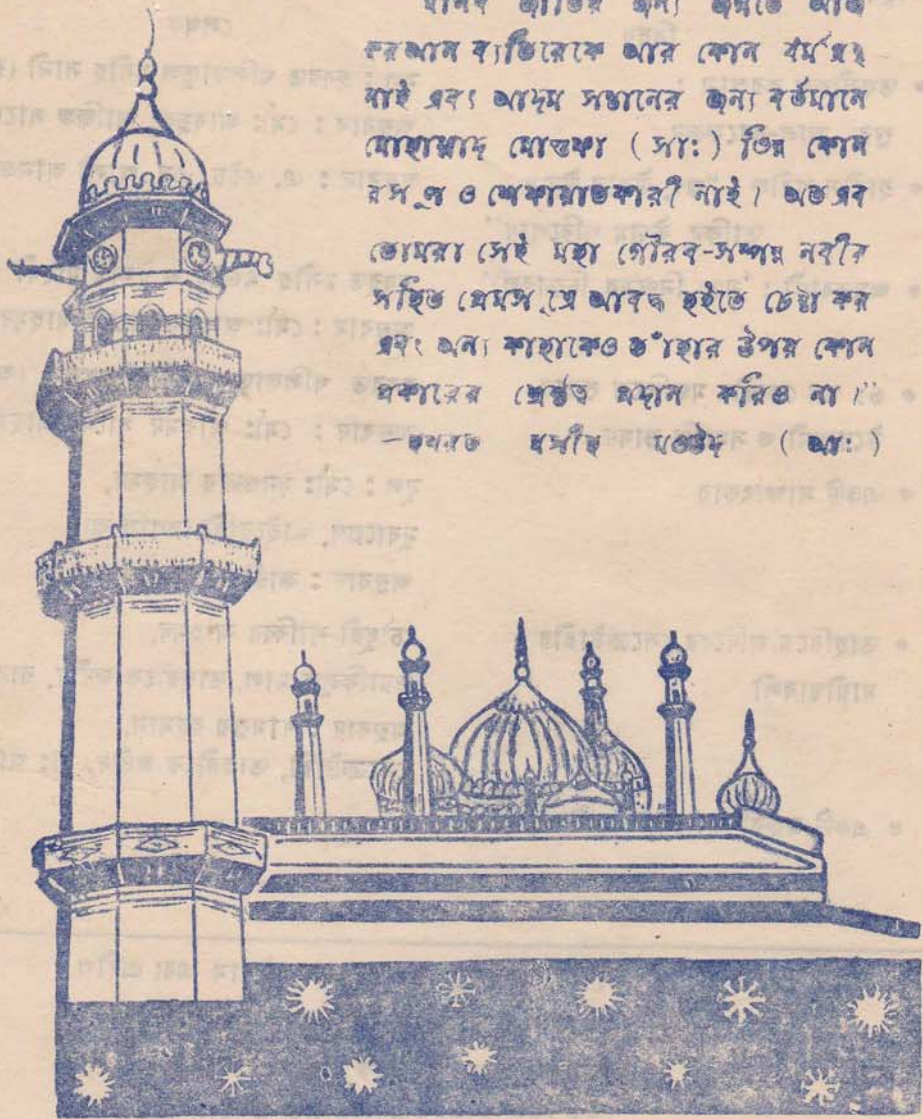 মানব জাতির জন্য জগতে আজ
করআন ব্যতিরেকে আর কোন ধর্ম গ্রন্থ
নাই এবং আদম সন্তানের জন্য বর্তমানে
মোহাম্মাদ মোস্তফা ( সাঃ ) ভিন্ন কোন
রসূল ও শেফায়াতকারী নাই । অতএব
তোমরা সেই মহা গৌরব-সম্পন্ন নবীর
সহিত প্রেমসূত্রে আবদ্ধ হইতে চেষ্টা কর
এবং অন্য কাহাকেও তাঁহার উপর কোন
প্রকারের শ্রেষ্ঠত্ব প্রদান করিও না ।”
—হযরত মসীহ মওউদ ( আঃ )